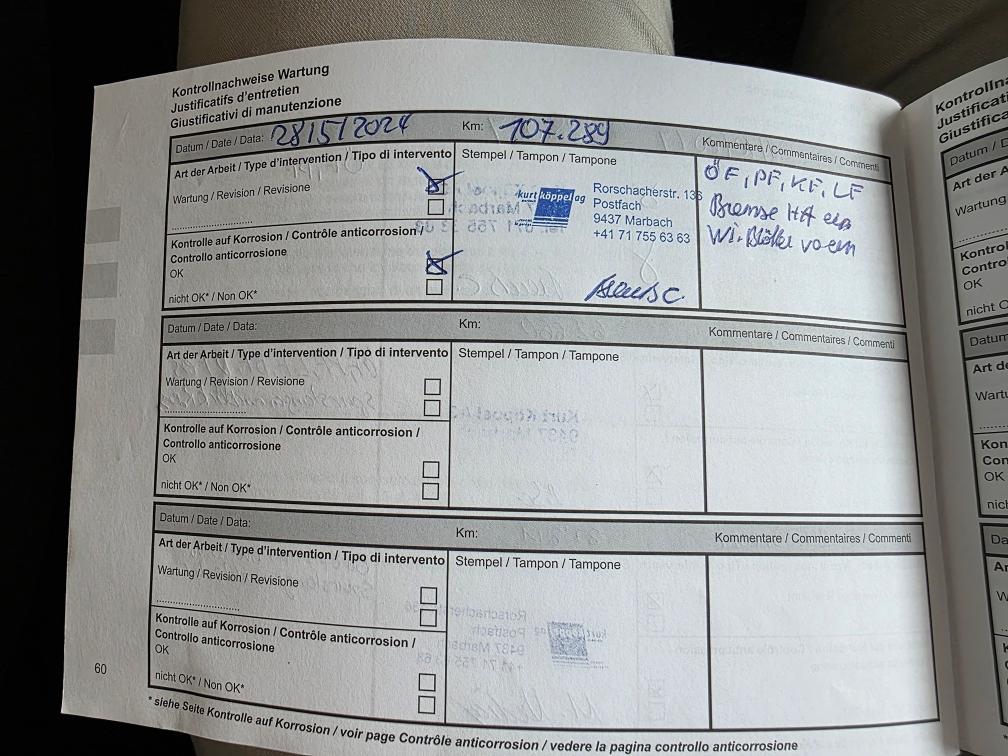 Kontrollnachweise Wartung
Justificatifs d'entretien
Giustificativi di manutenzione
Datum / Date / Data: 28/5/2024 Km: 107.289 Kommentare / Commentaires / Commenti
Art der Arbeit / Type d'intervention / Tipo di intervento
Wartung / Revision / Revisione
Kontrolle auf Korrosion / Contrôle anticorrosion /
Controllo anticorrosione
OK
nicht OK* / Non OK*
Stempel / Tampon / Tampone
kurt köppel ag
Rorschacherstr. 136
Postfach
9437 Marbach
+41 71 755 63 63
ÖF, PF, KF, LF
Bremse HA ern
Wi. Blätter vo ern
Datum / Date / Data: Km: Kommentare / Commentaires / Commenti
Art der Arbeit / Type d'intervention / Tipo di intervento
Wartung / Revision / Revisione
Kontrolle auf Korrosion / Contrôle anticorrosion /
Controllo anticorrosione
OK
nicht OK* / Non OK*
Stempel / Tampon / Tampone
Datum / Date / Data: Km: Kommentare / Commentaires / Commenti
Art der Arbeit / Type d'intervention / Tipo di intervento
Wartung / Revision / Revisione
Kontrolle auf Korrosion / Contrôle anticorrosion /
Controllo anticorrosione
OK
nicht OK* / Non OK*
Stempel / Tampon / Tampone
60
* siehe Seite Kontrolle auf Korrosion / voir page Contrôle anticorrosion / vedere la pagina controllo anticorrosione